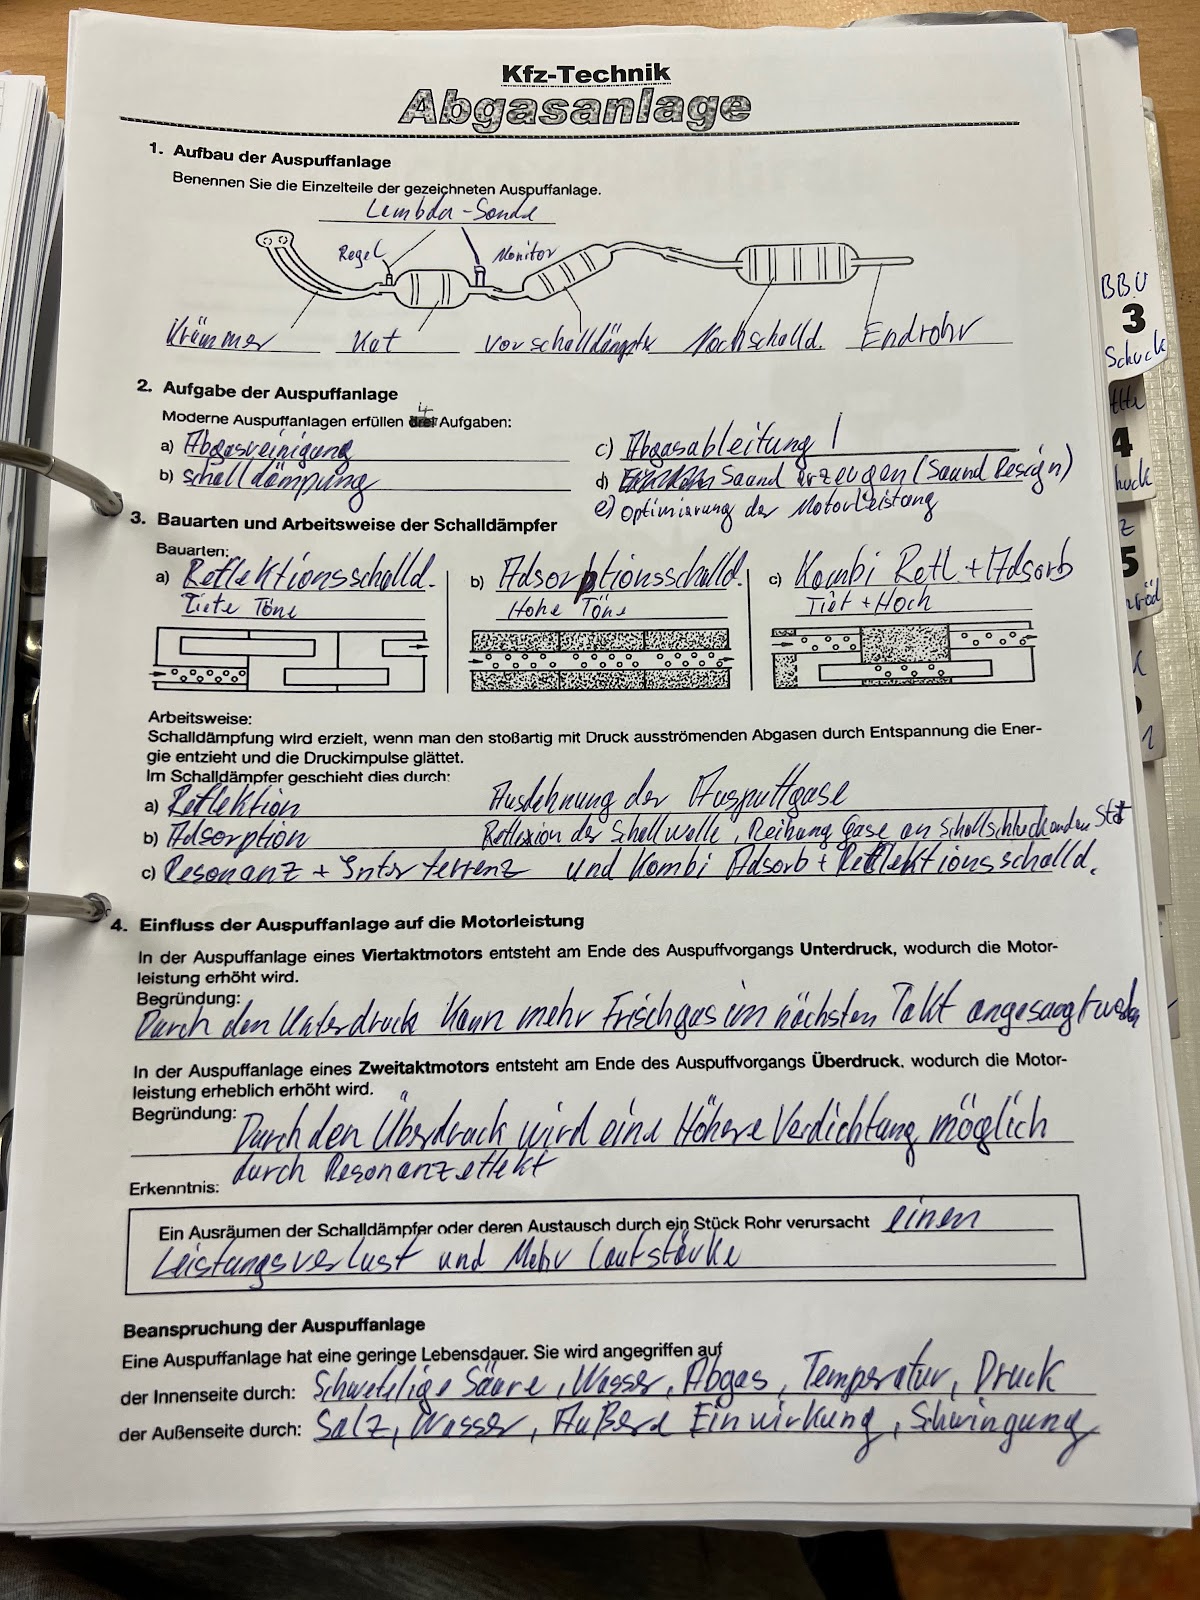 Kfz-Technik
Abgasanlage
1. Aufbau der Auspuffanlage
Benennen Sie die Einzelteile der gezeichneten Auspuffanlage.
Lambda-Sonde
Regel Monitor
Krümmer Kat Vorschalldämpfer Nachschalld. Endrohr
2. Aufgabe der Auspuffanlage
4
Moderne Auspuffanlagen erfüllen drei Aufgaben:
a) Abgasreinigung c) Abgasableitung
b) Schalldämpfung d) Sound erzeugen (Sound Design)
e) Optimierung der Motorleistung
3. Bauarten und Arbeitsweise der Schalldämpfer
Bauarten:
a) Reflektionsschalld. b) Adsorptionsschalld. c) Kombi Refl + Adsorb
Tiefe Töne Hohe Töne Tief + Hoch
Arbeitsweise:
Schalldämpfung wird erzielt, wenn man den stoßartig mit Druck ausströmenden Abgasen durch Entspannung die Ener-
gie entzieht und die Druckimpulse glättet.
Im Schalldämpfer geschieht dies durch:
a) Reflektion Ausdehnung der Auspuffgase
b) Adsorption Reflexion der Schallwelle, Reibung Gase an Schallschluckenden Stoff
c) Resonanz + Interferrenz und Kombi Adsorb + Reflektionsschalld.
4. Einfluss der Auspuffanlage auf die Motorleistung
In der Auspuffanlage eines Viertaktmotors entsteht am Ende des Auspuffvorgangs Unterdruck, wodurch die Motor-
leistung erhöht wird.
Begründung:
Durch den Unterdruck kann mehr Frischgas im nächsten Takt angesaugt werden
In der Auspuffanlage eines Zweitaktmotors entsteht am Ende des Auspuffvorgangs Überdruck, wodurch die Motor-
leistung erheblich erhöht wird.
Begründung: Durch den Überdruck wird eine Höhere Verdichtung möglich
durch Resonanzeffekt
Erkenntnis:
Ein Ausräumen der Schalldämpfer oder deren Austausch durch ein Stück Rohr verursacht einen
Leistungsverlust und Mehr Lautstärke
Beanspruchung der Auspuffanlage
Eine Auspuffanlage hat eine geringe Lebensdauer. Sie wird angegriffen auf
der Innenseite durch: Schweflige Säure, Wasser, Abgas, Temperatur, Druck
der Außenseite durch: Salz, Wasser, Äußere Einwirkung, Schwingung
BBU
3
Schuck
4
5